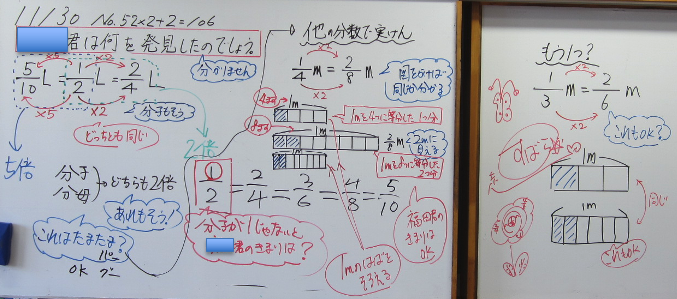 11/30 No.52×2+2=106
君は何を発見したのでしょう
分かりません
5/10 L = 1/2 L = 2/4 L
×5 ×2
×5 ×2
分子もそう
どっちとも同じ
5倍
2倍
分子
分母
どちらも2倍
あれもそう!
これはたまたま?
OK
1/2 = 2/4 = 3/6 = 4/8 = 5/10
分子が1じゃないと
君のきまりは?
他の分数で実けん
×2
1/4 m = 2/8 m
×2
図をかけば
同じも分かる
1m
1mを4つに等分した1つ分
2/8 m
1m
1mを8つに等分した
2つ分
1mのはばを
そろえる
福田君の
きまりは
OK
もう1つ?
×2
1/3 m = 2/6 m
×2
これもOK?
1m
1m
同じ
これもOK